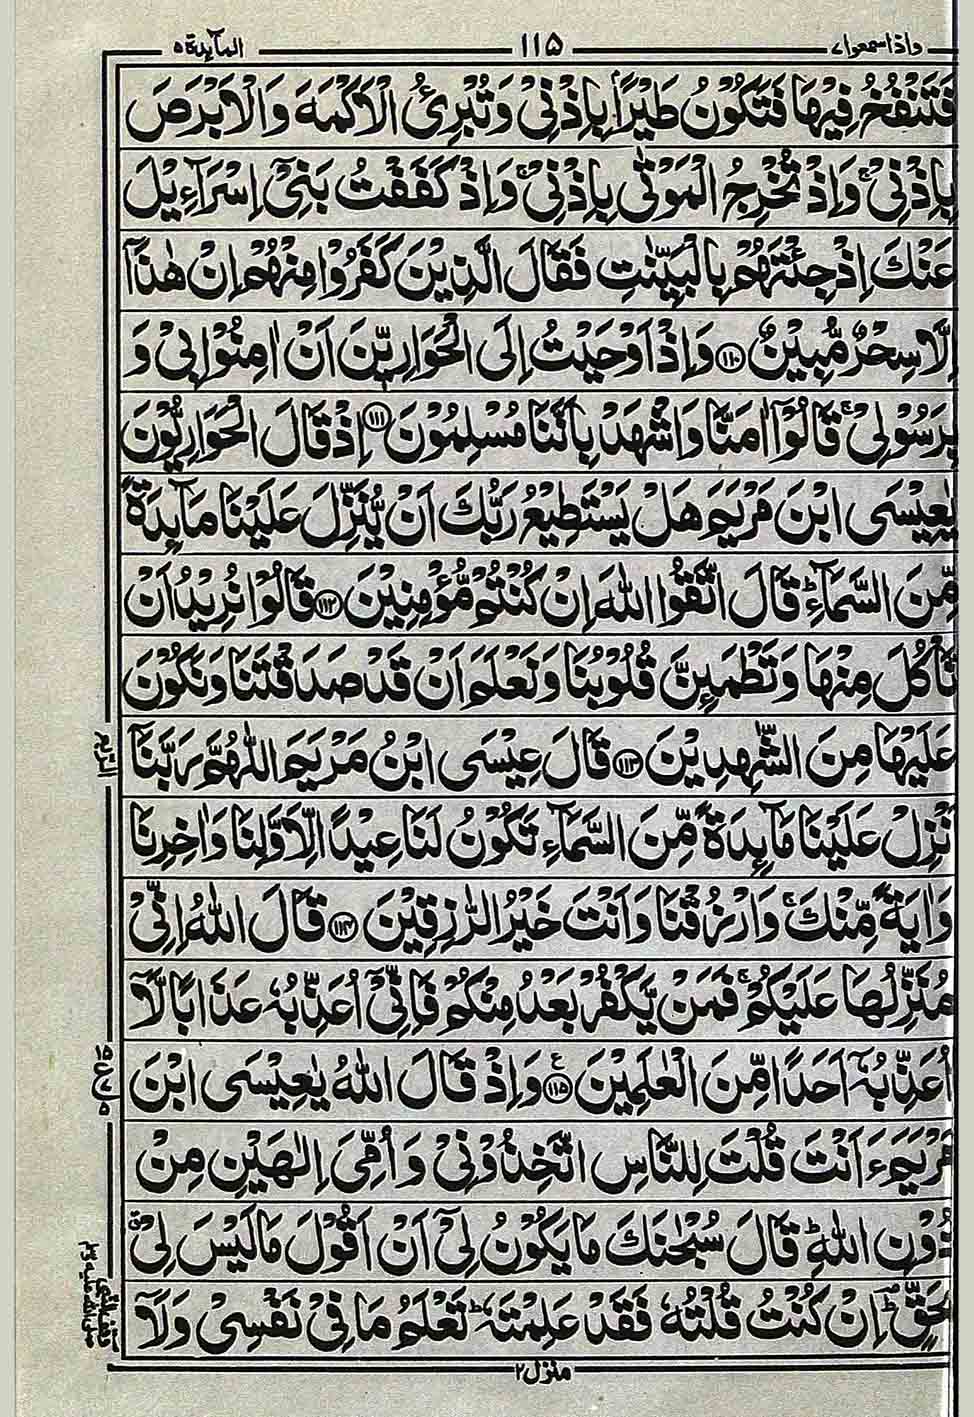 واذا سمعوا ٧
١١٥
المآئدة ٥
فَتَنْفُخُ فِيْهَا فَتَكُوْنُ طَيْرًۢا بِاِذْنِيْ وَتُبْرِئُ الْاَكْمَهَ وَالْاَبْرَصَ
بِاِذْنِيْ ۚ وَاِذْ تُخْرِجُ الْمَوْتٰى بِاِذْنِيْ ۚ وَاِذْ كَفَفْتُ بَنِيْٓ اِسْرَآءِيْلَ
عَنْكَ اِذْ جِئْتَهُمْ بِالْبَيِّنٰتِ فَقَالَ الَّذِيْنَ كَفَرُوْا مِنْهُمْ اِنْ هٰذَآ
اِلَّا سِحْرٌ مُّبِيْنٌ ﴿١١٠﴾ وَاِذْ اَوْحَيْتُ اِلَى الْحَوَارِيّٖنَ اَنْ اٰمِنُوْا بِيْ وَ
بِرَسُوْلِيْ ۚ قَالُوْٓا اٰمَنَّا وَاشْهَدْ بِاَنَّنَا مُسْلِمُوْنَ ﴿١١١﴾ اِذْ قَالَ الْحَوَارِيُّوْنَ
يٰعِيْسَى ابْنَ مَرْيَمَ هَلْ يَسْتَطِيْعُ رَبُّكَ اَنْ يُّنَزِّلَ عَلَيْنَا مَآئِدَةً
مِّنَ السَّمَآءِ ؕ قَالَ اتَّقُوا اللهَ اِنْ كُنْتُمْ مُّؤْمِنِيْنَ ﴿١١٢﴾ قَالُوْا نُرِيْدُ اَنْ
نَّاْكُلَ مِنْهَا وَتَطْمَئِنَّ قُلُوْبُنَا وَنَعْلَمَ اَنْ قَدْ صَدَقْتَنَا وَنَكُوْنَ
عَلَيْهَا مِنَ الشّٰهِدِيْنَ ﴿١١٣﴾ قَالَ عِيْسَى ابْنُ مَرْيَمَ اللّٰهُمَّ رَبَّنَآ
اَنْزِلْ عَلَيْنَا مَآئِدَةً مِّنَ السَّمَآءِ تَكُوْنُ لَنَا عِيْدًا لِّاَوَّلِنَا وَاٰخِرِنَا
وَاٰيَةً مِّنْكَ ۚ وَارْزُقْنَا وَاَنْتَ خَيْرُ الرّٰزِقِيْنَ ﴿١١٤﴾ قَالَ اللهُ اِنِّيْ
مُنَزِّلُهَا عَلَيْكُمْ ۚ فَمَنْ يَّكْفُرْ بَعْدُ مِنْكُمْ فَاِنِّيْٓ اُعَذِّبُهٗ عَذَابًا لَّآ
اُعَذِّبُهٗٓ اَحَدًا مِّنَ الْعٰلَمِيْنَ ﴿١١٥﴾ع وَاِذْ قَالَ اللهُ يٰعِيْسَى ابْنَ
مَرْيَمَ ءَاَنْتَ قُلْتَ لِلنَّاسِ اتَّخِذُوْنِيْ وَاُمِّيَ اِلٰهَيْنِ مِنْ
دُوْنِ اللهِ ؕ قَالَ سُبْحٰنَكَ مَا يَكُوْنُ لِيْٓ اَنْ اَقُوْلَ مَا لَيْسَ لِيْ ۗ
بِحَقٍّ ؕ اِنْ كُنْتُ قُلْتُهٗ فَقَدْ عَلِمْتَهٗ ؕ تَعْلَمُ مَا فِيْ نَفْسِيْ وَلَآ
منزل ٢